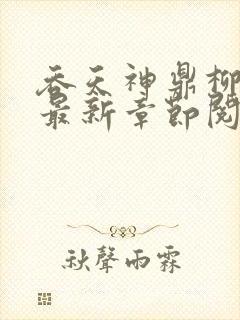 吞天神鼎柳
最新章節閱
秋聲雨霖